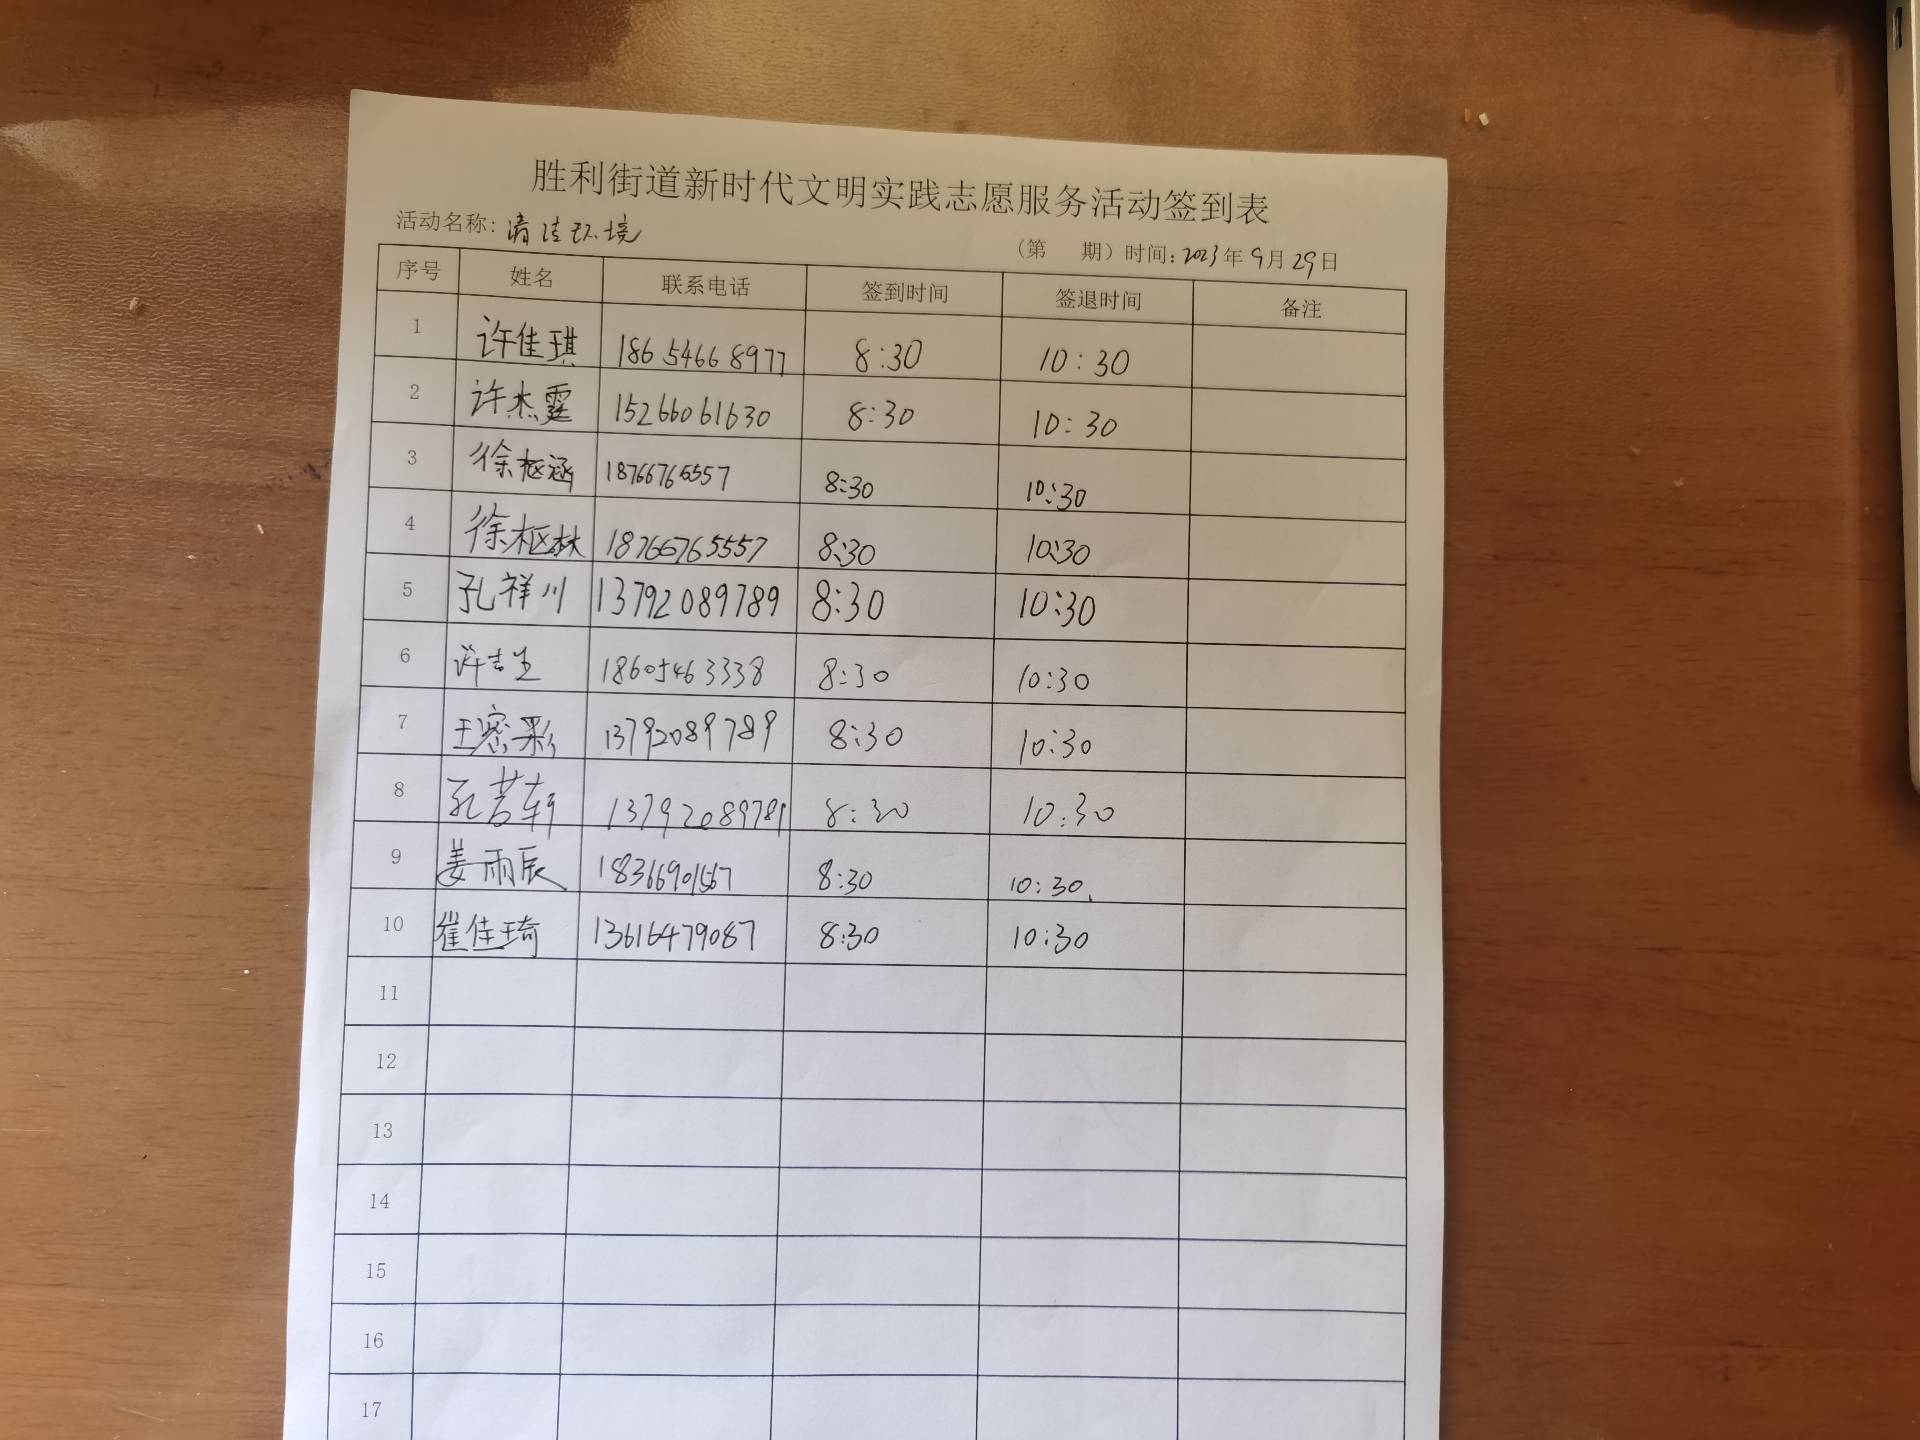 胜利街道新时代文明实践志愿服务活动签到表
活动名称：清洁环境 （第 期）时间：2023年9月29日
序号 姓名 联系电话 签到时间 签退时间 备注
1 许佳琪 18654668977 8:30 10:30
2 许杰霆 15266061630 8:30 10:30
3 徐枢涵 18766765557 8:30 10:30
4 徐枢林 18766765557 8:30 10:30
5 孔祥川 13792089789 8:30 10:30
6 许吉生 18605463338 8:30 10:30
7 王密彩 13792089789 8:30 10:30
8 孔若轩 13792089789 8:30 10:30
9 姜雨辰 18366901567 8:30 10:30
10 崔佳琦 13616479087 8:30 10:30
11
12
13
14
15
16
17